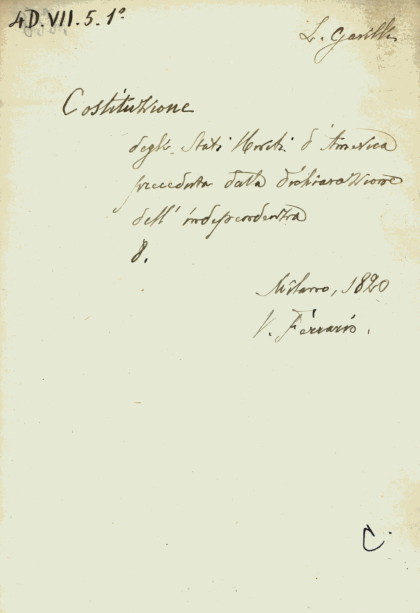 4D.VII.5.1º
L.
Costituzione
degli Stati Uniti d'America
preceduta dalla dichiarazione
dell' indipendenza
8.
Milano, 1820
V. Ferrario.
C.